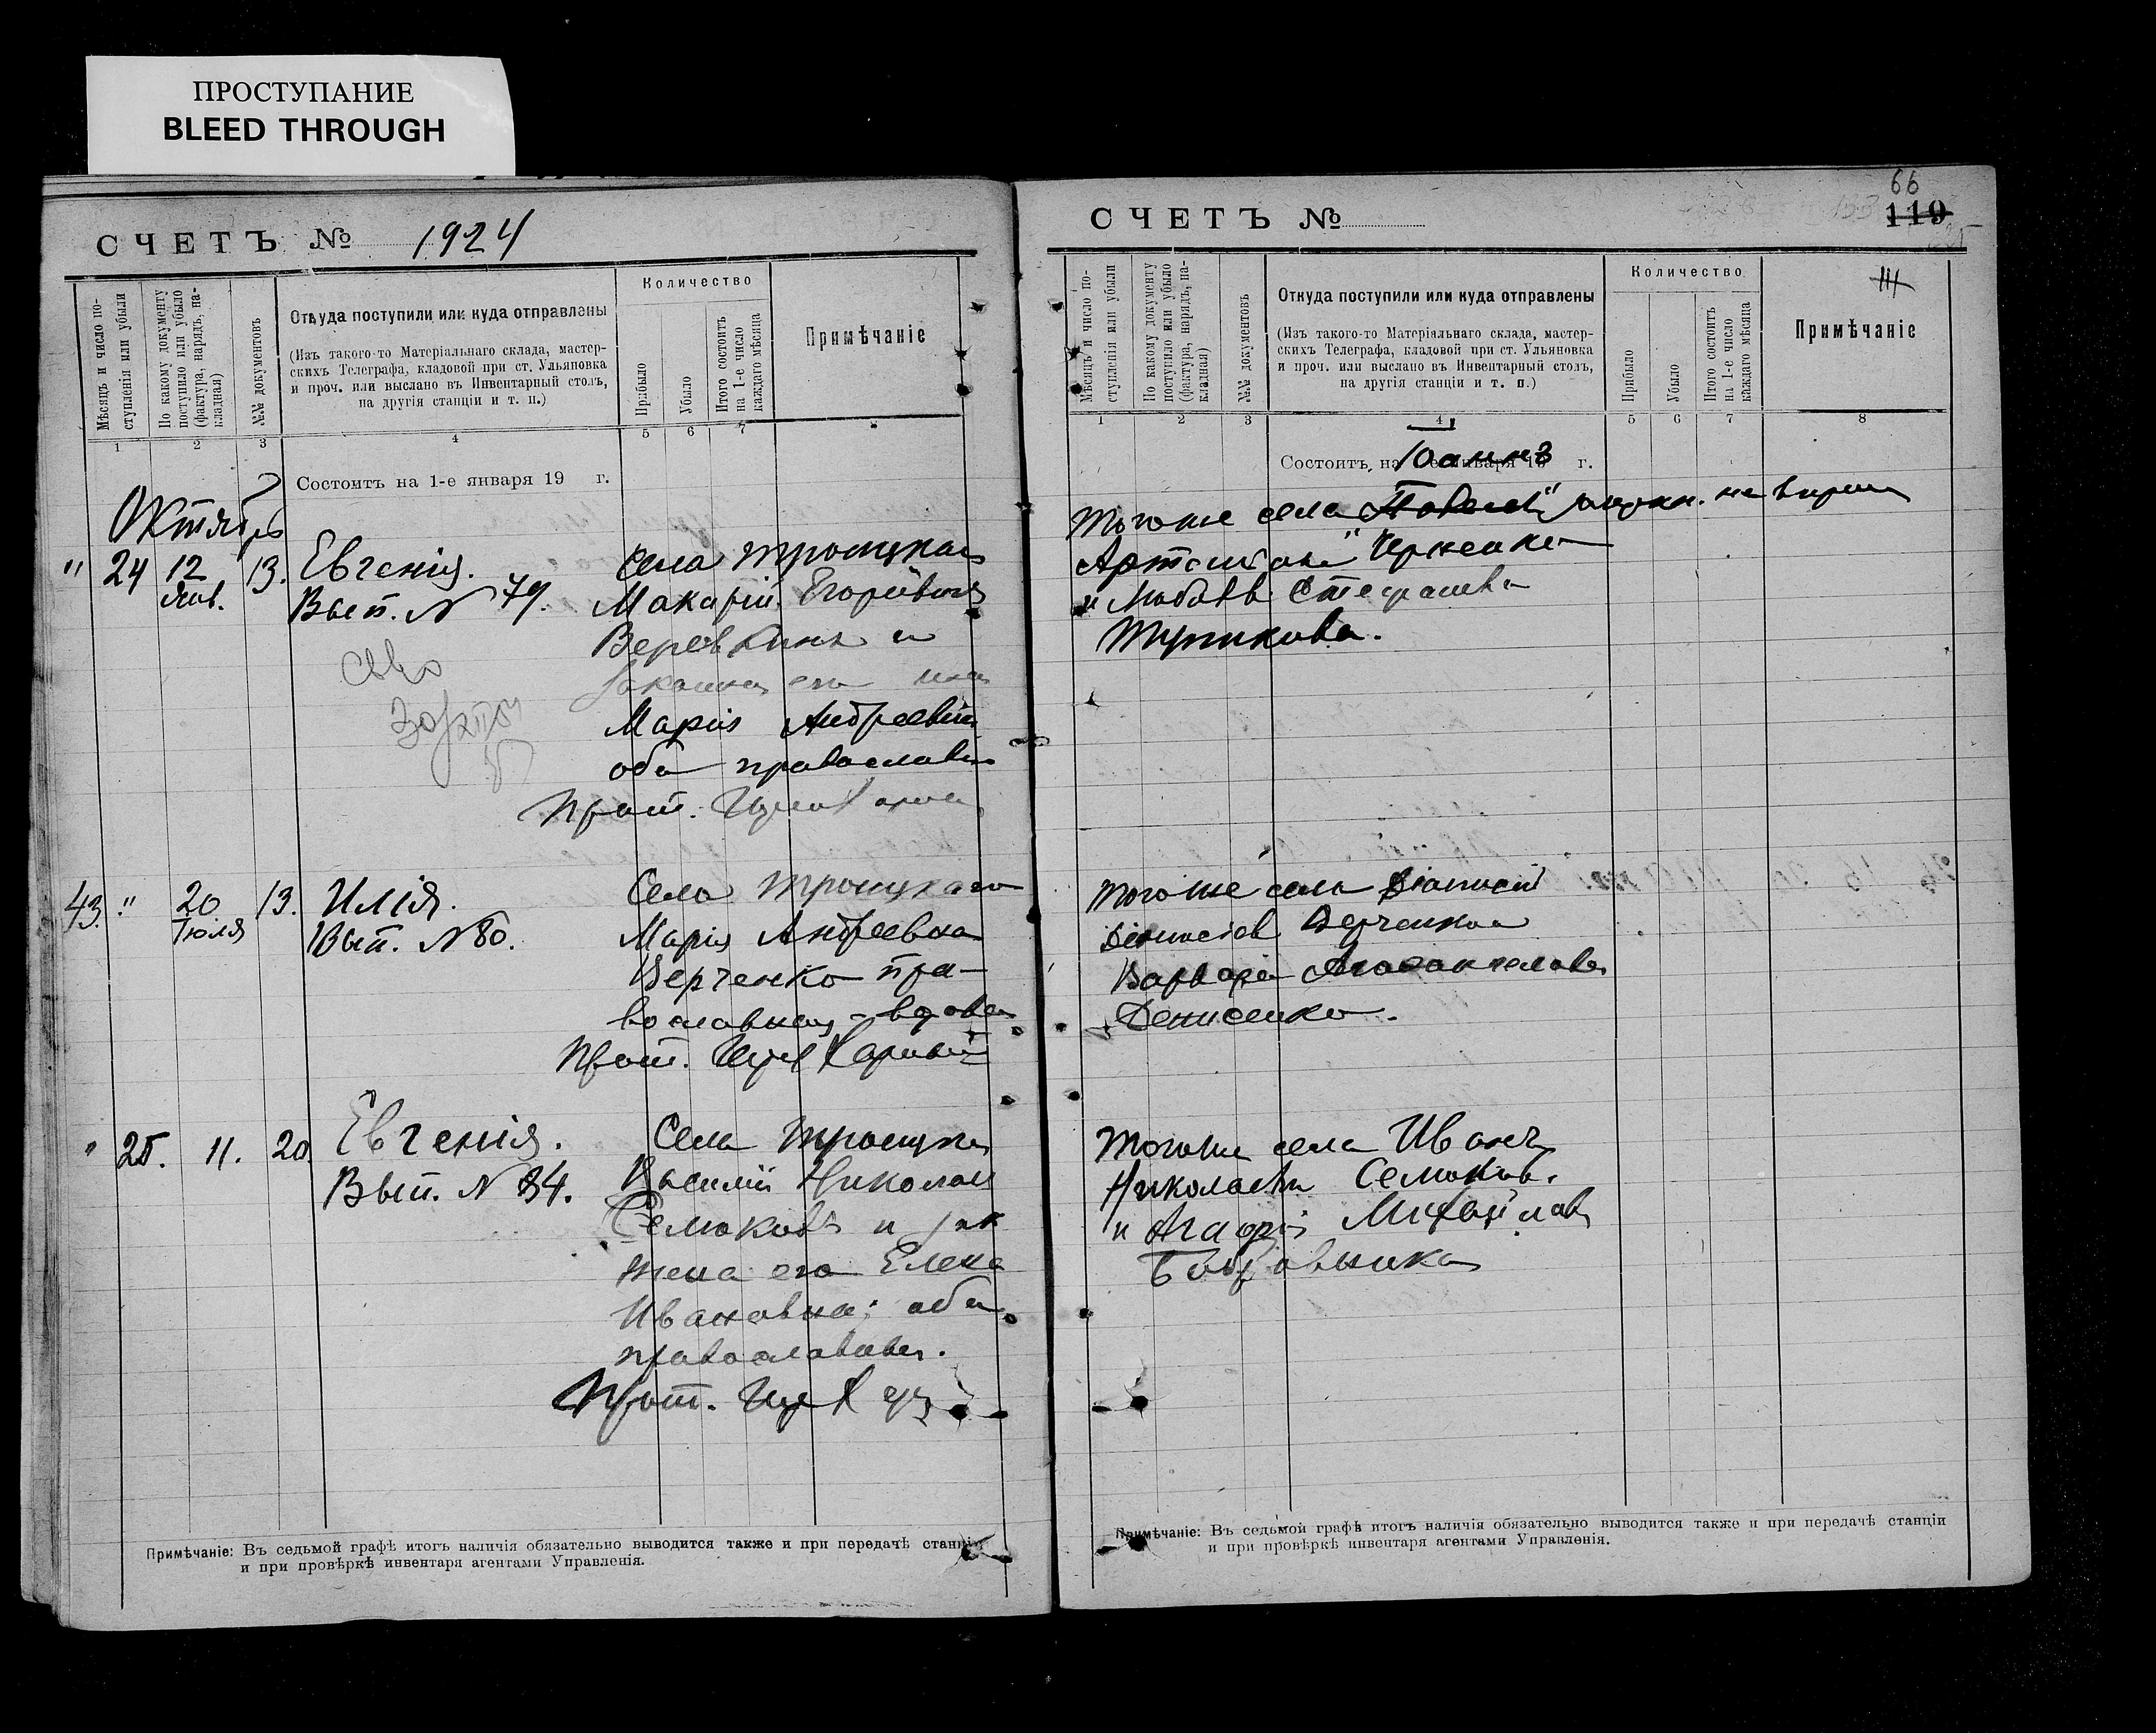 ПРОСТУПАНИЕ
BLEED THROUGH
СЧЕТЪ № 1924
Мѣсяцъ и число поступленія или убыли
По какому документу поступило или убыло (фактура, нарядъ, накладная)
№№ документовъ
Откуда поступили или куда отправлены
(Изъ такого-то Матеріальнаго склада, мастер-
скихъ Телеграфа, кладовой при ст. Ульяновка
и проч. или выслано въ Инвентарный столъ,
на другія станціи и т. п.)
Количество
Прибыло
Убыло
Итого состоитъ на 1-е число каждаго мѣсяца
Примѣчаніе
1 2 3 4 5 6 7
Состоитъ на 1-е января 19 г.
Октябрь
" 24 12 13. Евгенія. села Троицкаго
Янв. Вып. N 79. Макарій
Веревкинъ и
его
Марія Андреевна
оба православн
Прот.
43. " 20 13. Илія. Села Троицкаго
Іюля Вып. N 80. Марія Андреевна
Верченко пра-
вославная - вдова
Прот.
" 25. 11. 20. Евгенія. Села Троицка
Вып. N 84. Василій Николаев
Семаковъ и зак
жена его Елена
Ивановна; оба
православные.
Прот.
Примѣчаніе: Въ седьмой графѣ итогъ наличія обязательно выводится также и при передачѣ станціи
и при провѣркѣ инвентаря агентами Управленія.
66
119
СЧЕТЪ №
Мѣсяцъ и число поступленія или убыли
По какому документу поступило или убыло (фактура, нарядъ, накладная)
№№ документовъ
Откуда поступили или куда отправлены
(Изъ такого-то Матеріальнаго склада, мастер-
скихъ Телеграфа, кладовой при ст. Ульяновка
и проч. или выслано въ Инвентарный столъ,
на другія станціи и т. п.)
Количество
Прибыло
Убыло
Итого состоитъ на 1-е число каждаго мѣсяца
Примѣчаніе
1 2 3 4 5 6 7 8
Состоитъ на 1-е января 19 г.
Іоаннъ
Тогоже села
и Любовь Стефанова
Тогоже села
Варвара
Денисенко.
Тогоже села Иванъ
Николаевъ Семаков.
и Агафія Михайлова
Примѣчаніе: Въ седьмой графѣ итогъ наличія обязательно выводится также и при передачѣ станціи
и при провѣркѣ инвентаря агентами Управленія.